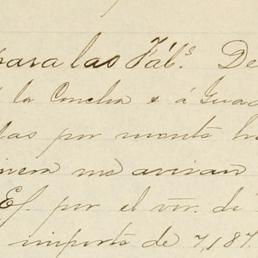 para las Fáb.s De
la Concha & á Guad
las por nuestr
nos avisan
Ef por el vor. de
importe de 7,187.